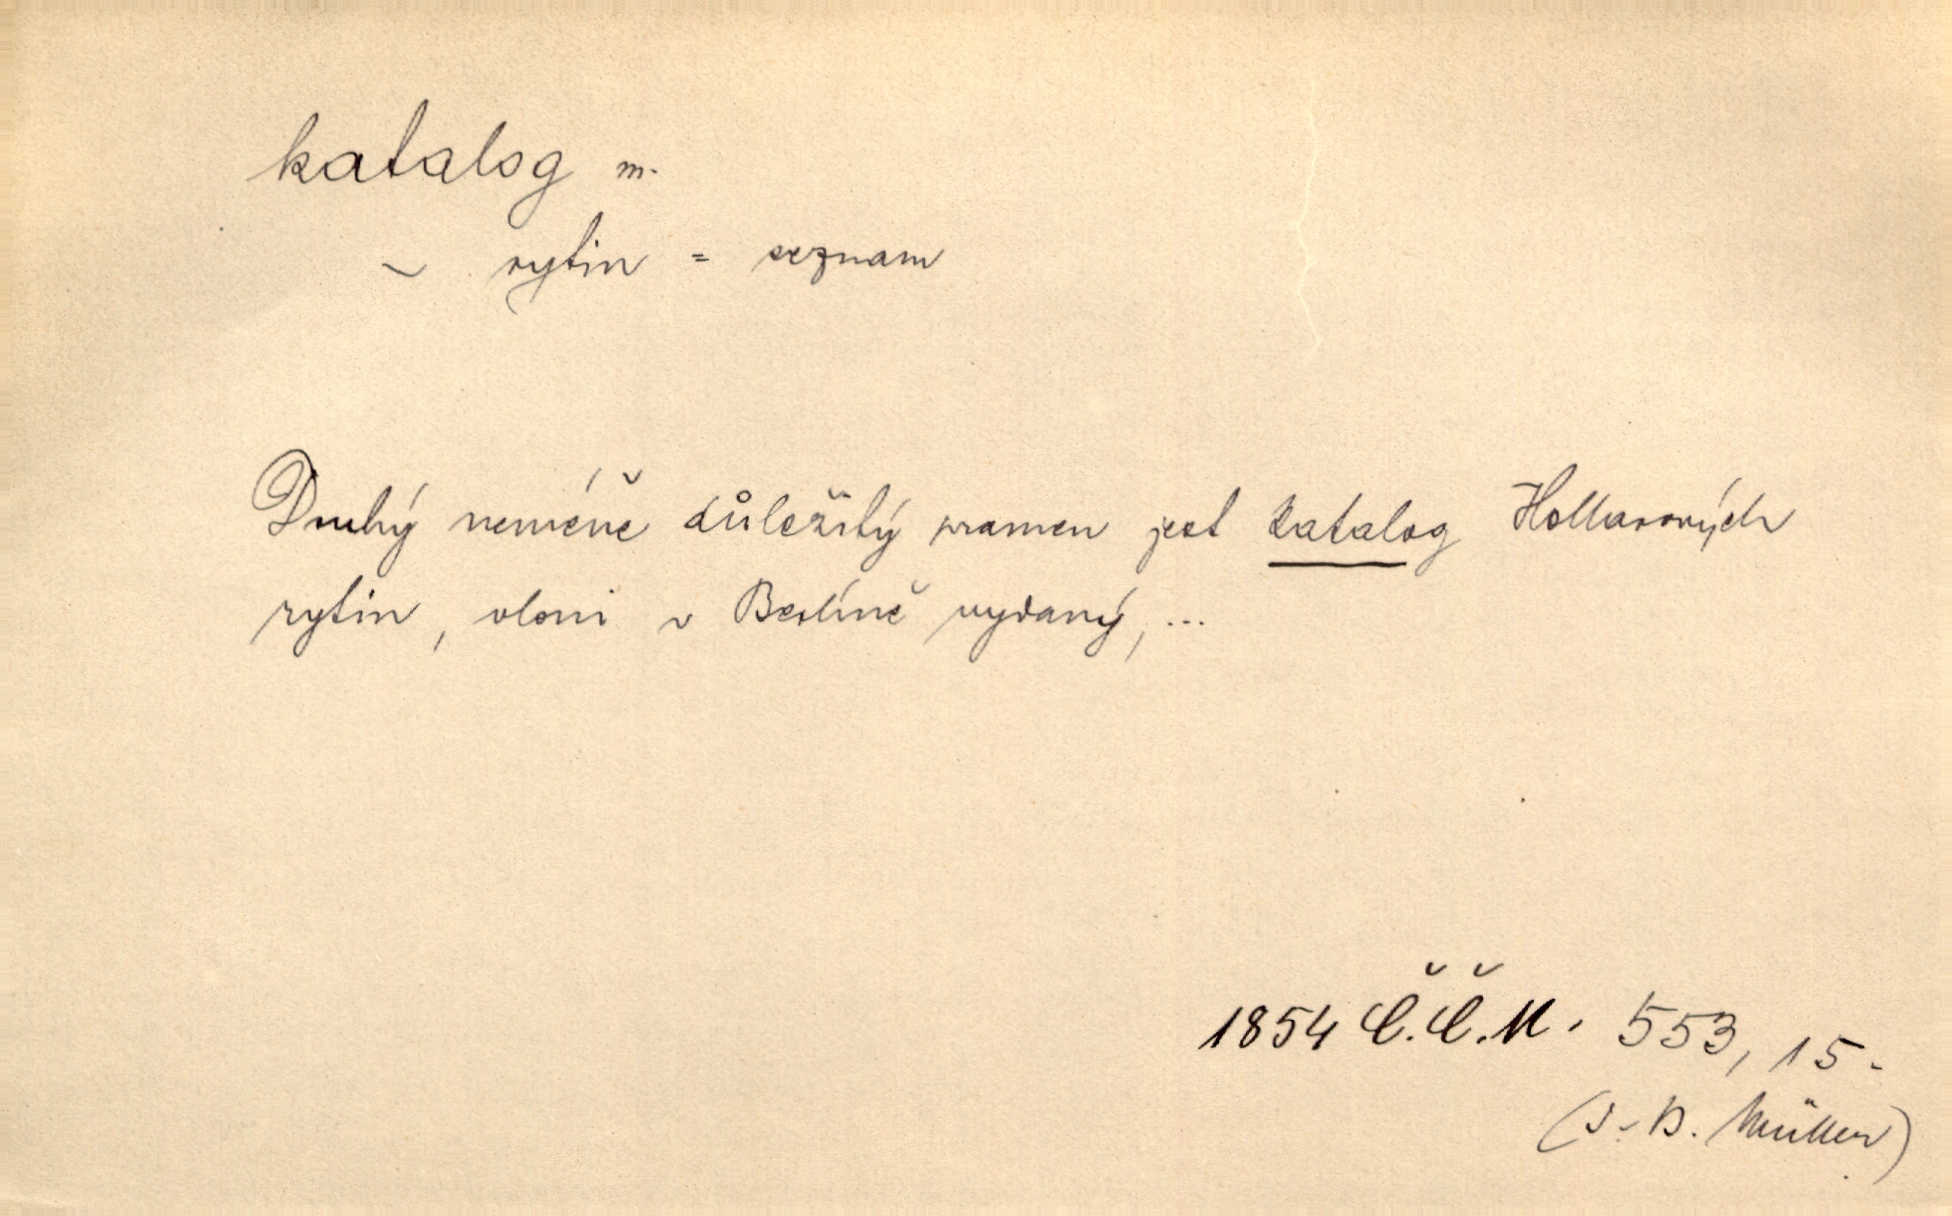 katalog m.
~ rytin = seznam
Druhý neméně důležitý pramen jest katalog Hollarových
rytin, vloni v Berlíně vydaný, ...
1854 Č.Č.M. 553, 15.
(J. B. Müller)